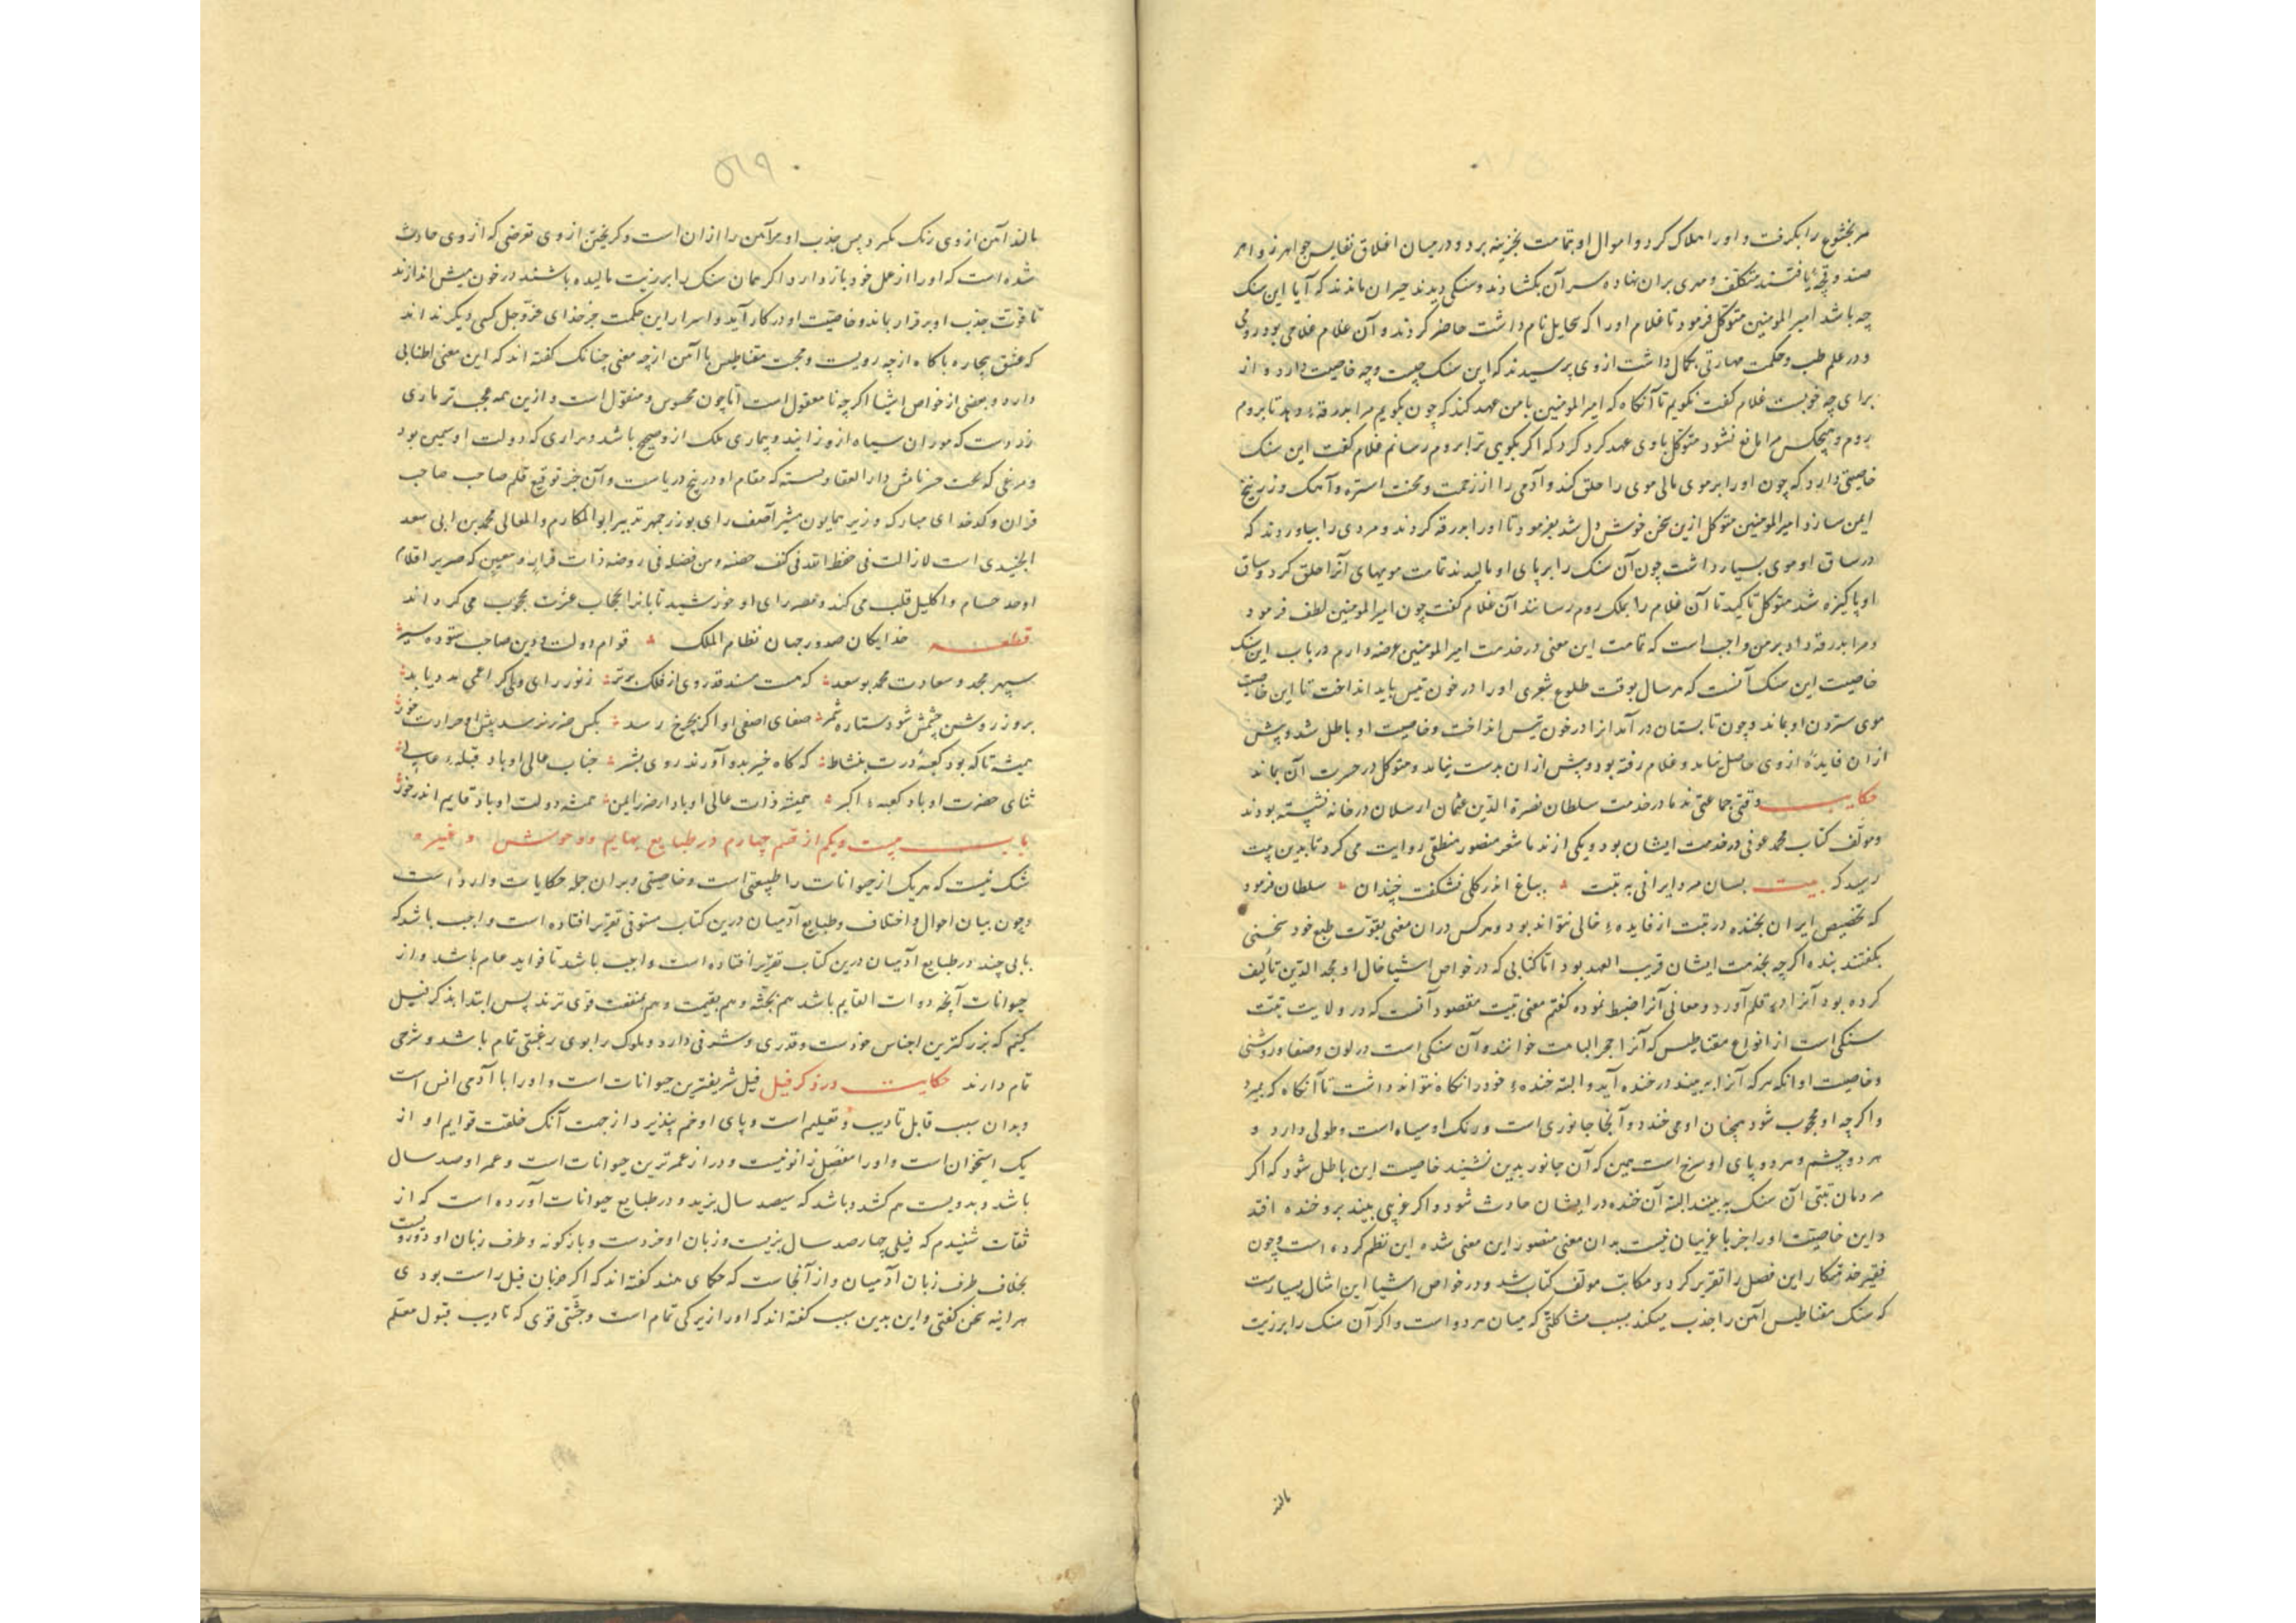 مر بختیشوع را بگرفت و اورا هلاک کرد و اموال او بتمامت بخزینه برد و در میان اغلاق نفایس جواهر زواهر
صندوقچهٔ یافتند متکلف و مهری بران نهاده سر آن بکشادند و سنکی دیدند حیران ماندند که آیا این سنک
چه باشد امیر المومنین متوکل فرمود تا غلام اورا که نام داشت حاضر کردند و آن غلام غلامی بود رومی
و در علم طب و حکمت مهارتی بکمال داشت از وی پرسیدند که این سنک چیست و چه خاصیت دارد و از
برای چه خوبست غلام کفت نکویم تا آنکاه که امیر المومنین با من عهد کند که چون بکویم مرا بدرقهٔ دهد تا بروم
بروم و هیچکس مرا مانع نشود متوکل با وی عهد کرد که اکر بکویی ترا بروم رسانم غلام کفت این سنک
خاصیتی دارد که چون اورا بر موی مالی موی را حلق کند و آدمی را از زحمت و محنت استره و آهک و زرنیخ
ایمن سازد امیر المومنین متوکل ازین سخن خوش دل شد بفرمود تا اورا بدرقه کردند و مردی را بیاوردند که
در ساق او موی بسیار داشت چون آن سنک را بر پای او مالیدند تمامت مویهای آنرا حلق کرد و ساق
او پاکیزه شد متوکل تا آن غلام را بملک روم رسانند آن غلام کفت چون امیر المومنین لطف فرمود
و مرا بدرقه داد بر من واجب است که تمامت این معنی در خدمت امیر المومنین عرضه دارم در باب این سنک
خاصیت این سنک آنست که هر سال بوقت طلوع شعری اورا در خون تیس باید انداخت تا این خاصیت
موی ستردن او بماند و چون تابستان در آمد انرا در خون تیس انداخت و خاصیت او باطل شد و پیش
ازان فایدهٔ از وی حاصل نیامد و غلام رفته بود و پیش ازان بدست نیامد و متوکل در حسرت آن بماند
حکایت وقتی جماعتی ندما در خدمت سلطان نصرة الدین عثمان ارسلان در خانه نشسته بودند
و مولف کتاب محمد عوفی در خدمت ایشان بود و یکی از ندما شعر منصور منطقی روایت می کرد تا بدین بیت
رسید که بیت بسان مرد ایرانی به تبت ؞ بباغ اندر کلی نشکفت خندان ؞ سلطان فرمود
که تخصیص ایران بخنده در تبت از فایدهٔ خالی نتواند بود و هر کس دران معنی بقوت طبع خود سخنی
بکفتند بنده اکر چه بخدمت ایشان قریب العهد بود اما کتابی که در خواص اشیا خال او مجد الدین تألیف
کرده بود آنرا در قلم آورد و معانی آنرا ضبط نموده کفتم معنی بیت مقصود آنست که در ولایت تبت
سنکی است از انواع مقناطیس که آنرا حجر الباهت خوانند و آن سنکی است در لون و صفا و روشنی
و خاصیت او انکه هر که آنرا به بیند در خنده آید و البته خندهٔ خود را نکاه نتواند داشت تا آنکاه که بمیرد
و اکر چه او محجوب شود همچنان او می خندد و آنجا جانوری است و رنک او سیاه است و طولی دارد و
هر دو چشم و هر دو پای او سرخ است همین که آن جانور بدین نشیند خاصیت این باطل شود که اکر
مردمان تبتی آن سنک به بینند البته آن خنده در ایشان حادث شود و اکر غریبی بیند برو خنده افتد
و این خاصیت اورا جز با غریبان نیست بدان معنی منصور این معنی شده این نظم کرده است و چون
فقیر خدمتکار این فصل را تقریر کرد و مکاتب مولف کتاب شد و در خواص اشیا این امثال بسیارست
که سنک مقناطیس آهن را جذب میکند بسبب مشاکلتی که میان هر دو است و اکر آن سنک را بر زیت
مالند
۵۱۹
مالند آهن از وی رنک نکیرد پس جذب او مر آهن را ازان است و کریختن از وی تعرضی که از وی حادث
شده است که اورا از عمل خود باز دارد اکر همان سنک را بر زیت مالیده باشند در خون میش اندازند
تا قوت جذب او بر قرار بماند و خاصیت او در کار آید و اسرار این حکمت جز خدای عز و جل کسی دیکر نداند
که عشق بیجاره با کاه از چه رویست و محبت مقناطیس با آهن از چه معنی چنانک کفته اند که این معنی اطنابی
دارد و بعضی از خواص اشیا اکر چه نا معقول است اما چون محسوس و منقول است و ازین همه عجب تر ماری
زردست که موران سیاه ازو زایند و بیماری ملک ازو صحیح باشد و مداری که دولت او سمین بود
و مرغی که تحت حرنامش دار العقاد بسته که مقام او در پنج دریاست و آن جز توقیع قلم صاحب صاحب
قران و کدخدای مبارکه وزیر همایون مشیر آصف رای بوزرجمهر تدبیر ابو المکارم و المعالی محمد بن ابی سعد
الجنیدی است لا زالت فی حفظ الله فی کنف حضنه و من فضله فی روضه ذات قرار و معین که صریر اقلام
اوصد حسام و اکلیل قلب می کند و عصهٔ رای او خورشید تابانرا بحجاب عزت محجوب می کرداند
قطعه خدایکان صدور جهان نظام الملک ؞ قوام دولت و دین صاحب ستوده سیر ؞
سپهر مجد و سعادت محمد بو سعد ؞ که هست مسند قدروی از فلک برتر ؞ ز نور رای وی کر اعمی بد دیابد ؞
بروز روشن چشمش شود ستاره شمر ؞ صفای اصفی او اکر بچرخ رسد ؞ بکس ضرر نرسد پیش او حرارت خور ؞
همیشه تا که بود کعبهٔ درت بنشاط ؞ که کاه خیر بدو آورند روی بشر ؞ جناب عالی او باد قبلهٔ حاجی ؞
ثنای حضرت او باد کعبهٔ اکبر ؞ همیشه ذات عالی او باد از ضرر ایمن ؞ همیشه دولت او باد قایم اندر خور ؞
باب بیست و یکم از قسم چهارم در طبایع بهایم و وحوش و غیره
شک نیست که هر یک از حیوانات را طبیعتی است و خاصیتی و بران جمله حکایات وارد است
و چون بیان احوال و اختلاف و طبایع آدمیان درین کتاب مستوفی تقریر افتاده است واجب باشد که
بابی چند در طبایع آدمیان درین کتاب تقریر افتاده است واجب باشد تا فواید عام باشد و از
حیوانات آنچه دوات القایم باشد هم بجثه و هم بقیمت و هم بمنفعت قوی ترند پس ابتدا بذکر فیل
کنیم که بزرکترین اجناس خودست و قدری و شرفی دارد و ملوک را بوی رغبتی تمام باشد و شرحی
تمام دارند حکایت در ذکر فیل فیل شریفترین حیوانات است و اورا با آدمی انس است
و بدان سبب قابل تادیب و تعلیم است و پای او خم پنذیرد از جهت آنک خلقت قوایم او از
یک استخوان است و اورا مفصل زانو نیست و دراز عمر ترین حیوانات است و عمر او صد سال
باشد و بدویست هم کشد و باشد که سیصد سال بزید و در طبایع حیوانات آورده است که از
ثقات شنیدم که فیلی چهارصد سال بزیست و زبان او خردست و بازکونه و طرف زبان او درونست
بخلاف طرف زبان آدمیان و از آنجاست که حکمای هند کفته اند که اکر زبان فیل راست بودی
هراینه سخن کفتی و این بدین سبب کفته اند که اورا زیرکی تمام است و جثتی قوی که تادیب قبول معلم